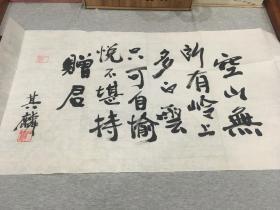 空山無
所有岭上
多白雲
只可自愉
悦不堪持
贈君
其麟